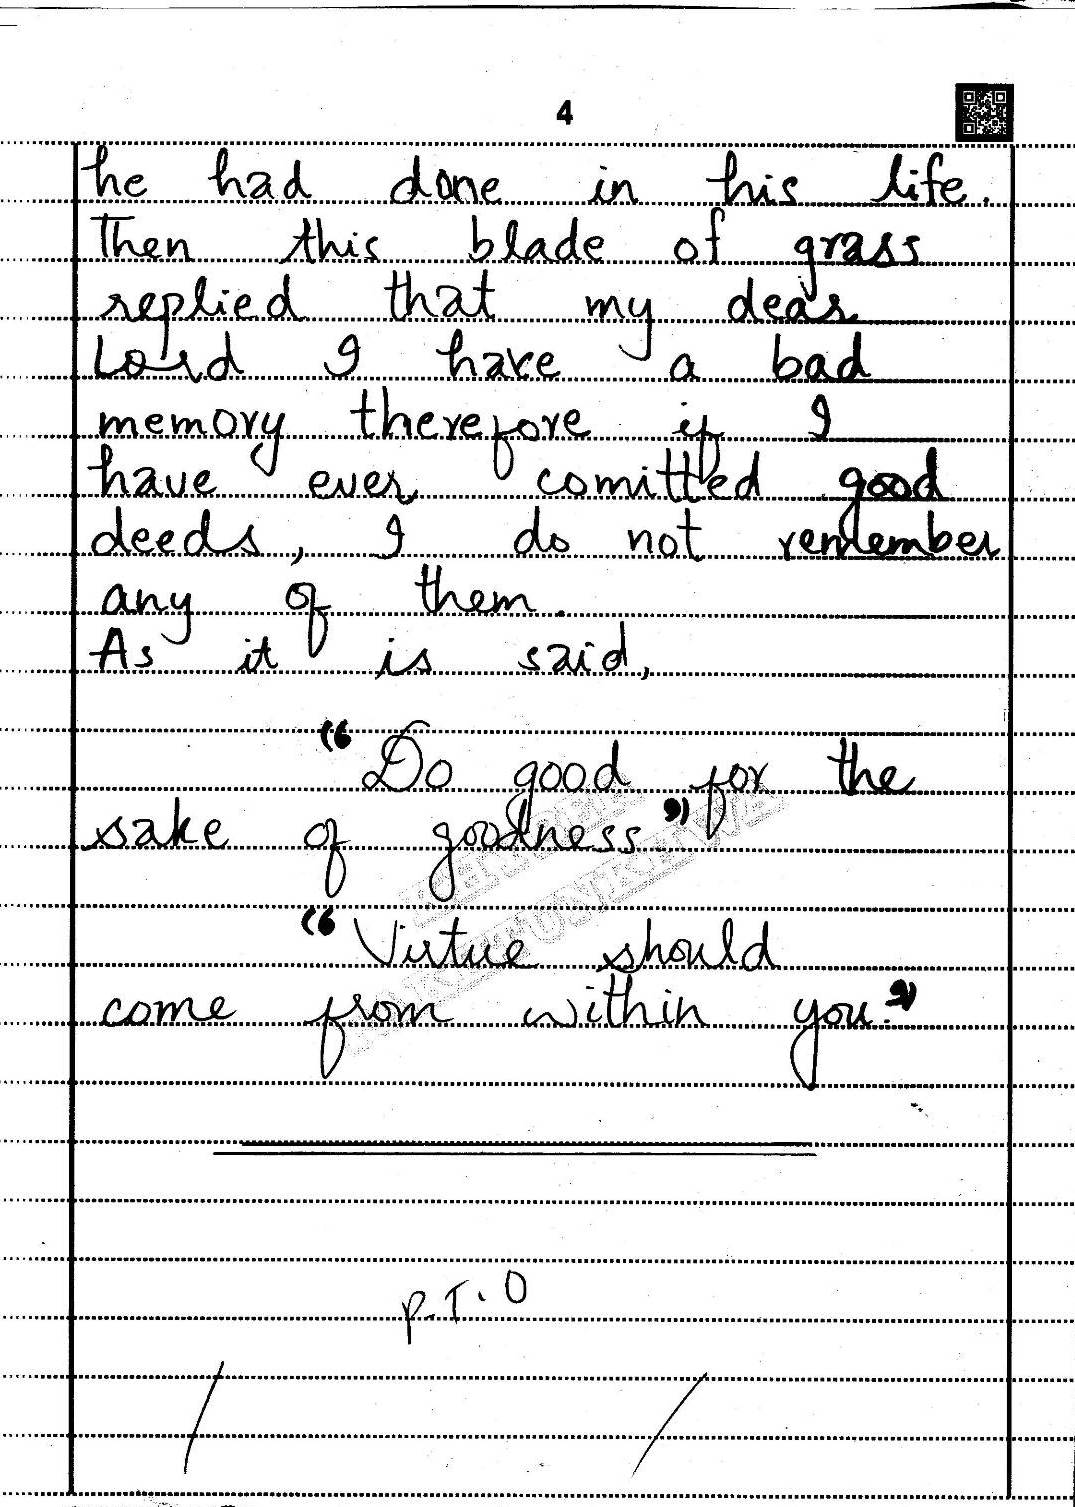 4
he had done in his life.
Then this blade of grass
replied that my dear
Lord I have a bad
memory therefore if I
have ever comitted good
deeds, I do not remember
any of them.
As it is said,
“Do good for the
sake of goodness”
“Virtue should
come from within you.”
P.T.O